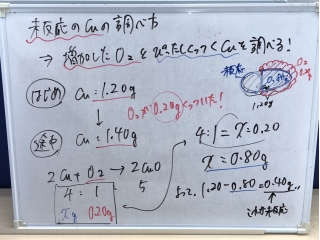 未反応のCuの調べ方
⇒ 増加したO₂とぴったしくっつくCuを調べる!
はじめ Cu : 1.20g
O₂が0.20gくっついた!
途中 Cu : 1.40g
2Cu + O₂ → 2CuO
4 : 1 5
xg 0.20g
4:1 = x:0.20
x = 0.80g
よって、1.20-0.80=0.40g
これが未反応
未反応
0.80g
O₂
0.20g
1.20g